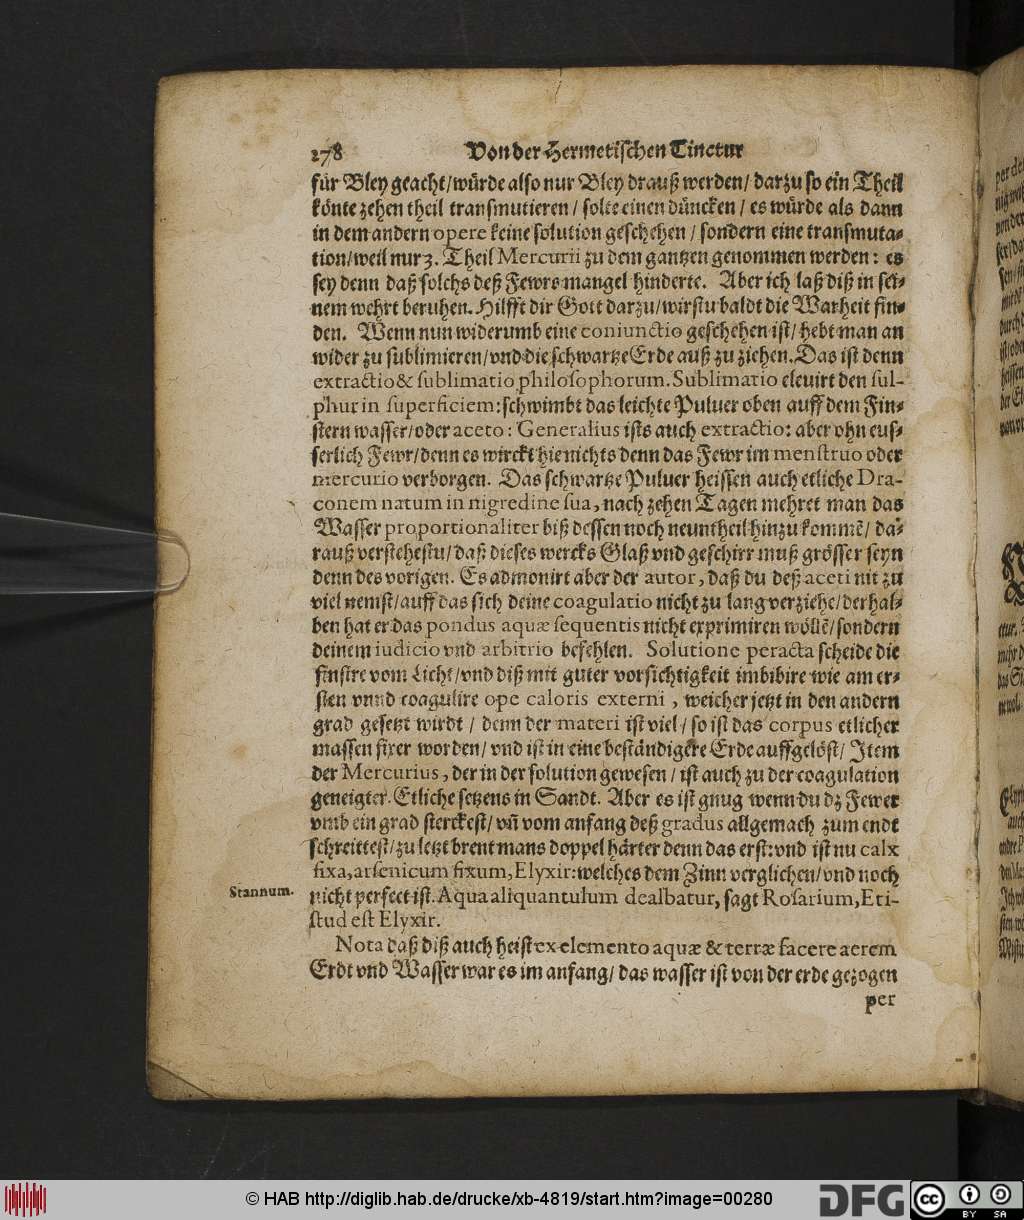 278 Von der Hermetischen Tinctur
für Bley geacht/würde also nur Bley drauß werden/ darzu so ein Theil
könte zehen theil transmutieren / solte einen düncken / es würde als dann
in dem andern opere keine solution geschehen / sondern eine transmuta-
tion/weil nur 3. Theil Mercurii zu dem gantzen genommen werden: es
sey denn daß solchs deß Fewrs mangel hinderte. Aber ich laß diß in sei-
nem wehrt beruhen. Hilfft dir Gott darzu/wirstu baldt die Warheit fin-
den. Wenn nun widerumb eine coniunctio geschehen ist/ hebt man an
wider zu sublimieren/vnd die schwartze Erde auß zu ziehen. Das ist denn
extractio & sublimatio philosophorum. Sublimatio eleuirt den sul-
phur in superficiem: schwimbt das leichte Puluer oben auff dem Fin-
stern wasser/oder aceto: Generalius ists auch extractio: aber ohn eus-
serlich Fewr/denn es wirckt hie nichts denn das Fewr im menstruo oder
mercurio verborgen. Das schwartze Puluer heissen auch etliche Dra-
conem natum in nigredine sua, nach zehen Tagen mehret man das
Wasser proportionaliter biß dessen noch neuntheil hinzu kommẽ/ da-
rauß verstehestu/ daß dieses wercks Glaß vnd geschirr muß grösser seyn
denn des vorigen. Es admonirt aber der autor, daß du deß aceti nit zu
viel nemst/auff das sich deine coagulatio nicht zu lang verziehe/derhal-
ben hat er das pondus aquæ sequentis nicht exprimiren wöllẽ/sondern
deinem iudicio vnd arbitrio befehlen. Solutione peracta scheide die
finstre vom Licht/vnd diß mit guter vorsichtigkeit imbibire wie am er-
sten vnnd coagulire ope caloris externi, welcher jetzt in den andern
grad gesetzt wirdt / denn der materi ist viel / so ist das corpus etlicher
massen fixer worden/ vnd ist in eine beständigere Erde auffgelöst/ Item
der Mercurius, der in der solution gewesen / ist auch zu der coagulation
geneigter. Etliche setzens in Sandt. Aber es ist gnug wenn du dz Fewer
vmb ein grad sterckest/ vñ vom anfang deß gradus allgemach zum endt
schreittest/zu letzt brent mans doppel härter denn das erst: vnd ist nu calx
fixa, arsenicum fixum, Elyxir: welches dem Zinn verglichen/vnd noch
Stannum.
nicht perfect ist. Aqua aliquantulum dealbatur, sagt Rosarium, Eti-
stud est Elyxir.
Nota daß diß auch heist ex elemento aquæ & terræ facere aerem
Erdt vnd Wasser war es im anfang/ das wasser ist von der erde gezogen
per
© HAB http://diglib.hab.de/drucke/xb-4819/start.htm?image=00280
DFG
cc
BY SA